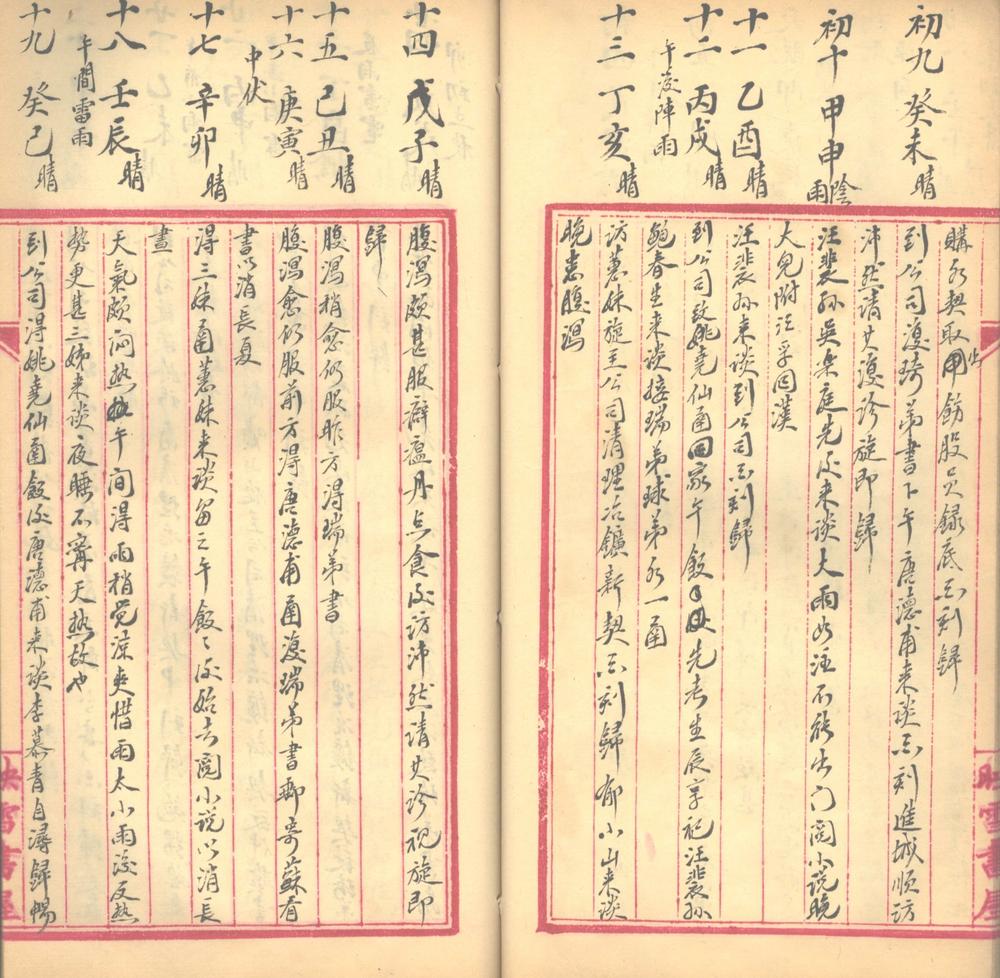 初九 癸未 晴
購永契取用飭股員錄底 酉刻歸
到公司復琦弟書下午唐德甫來談酉刻進城順訪
沛然請其復診旋即歸
初十 甲申 陰雨
汪裴孫吳 庭先後來談大雨如注不能出門閱小說晚
大兒附江孚回漢
十一 乙酉 晴
汪裴孫來談到公司酉刻歸
十二 丙戌 晴
午後陣雨
到公司致姚堯仙函回家午飯 先考生辰享祀汪裴孫
鮑春生來談接瑞弟球弟永一函
十三 丁亥 晴
訪蕙妹旋至公司清理冶鑛新契酉刻歸郁小山來談
晚患腹瀉
十四 戊子 晴
腹瀉頗甚服痧瘟丹点食後訪沛然請其診視旋即
歸
十五 己丑 晴
腹瀉稍愈仍服昨方得瑞弟書
十六 庚寅 晴
中伏
腹瀉愈仍服前方得唐德甫函復瑞弟書鄉寄蘇看
書以消長夏
十七 辛卯 晴
得三妹函蕙妹來談留之午飯飯後始去閱小說以消長
晝
十八 壬辰 晴
午間雷雨
天氣頗悶熱午間得雨稍覺涼爽惜雨太小雨後反熱
勢更甚三姊來談夜睡不寧天熱故也
十九 癸巳 晴
到公司得姚堯仙函飯後唐德甫來談李慕青自潯歸暢
映雪書屋
映雪書屋